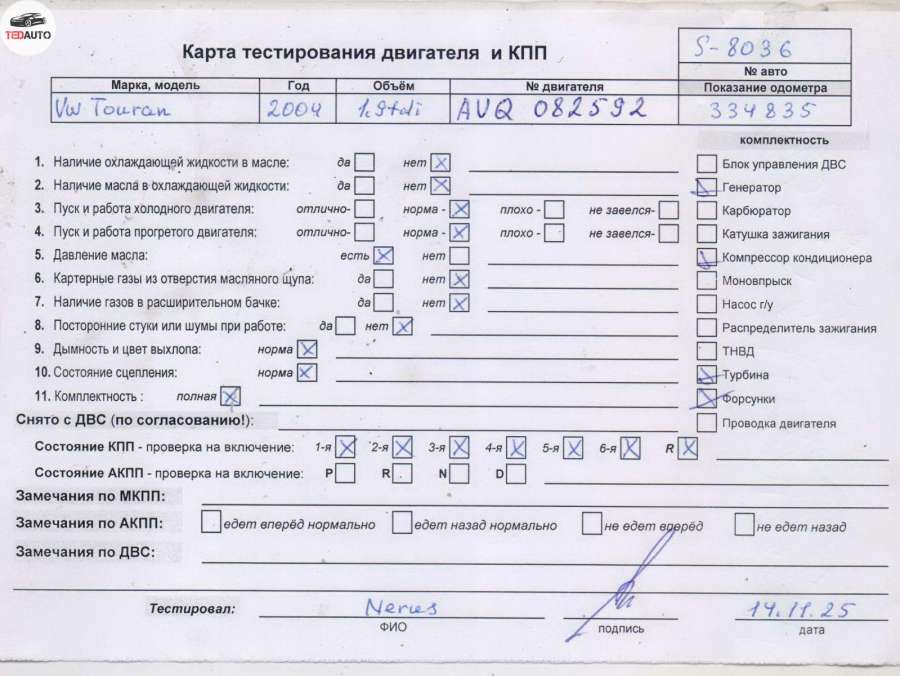 TEDAUTO
Карта тестирования двигателя и КПП
S-8036
№ авто
Марка, модель Год Объём № двигателя Показание одометра
VW Touran 2004 1.9tdi AVQ 082592 334835
комплектность
1. Наличие охлаждающей жидкости в масле: да нет X
Блок управления ДВС
2. Наличие масла в охлаждающей жидкости: да нет X
Генератор
3. Пуск и работа холодного двигателя: отлично- норма - X плохо - не завелся-
Карбюратор
4. Пуск и работа прогретого двигателя: отлично- норма - X плохо - не завелся-
Катушка зажигания
5. Давление масла: есть X нет
Компрессор кондиционера
6. Картерные газы из отверстия масляного щупа: да нет X
Моновпрыск
7. Наличие газов в расширительном бачке: да нет X
Насос г/у
8. Посторонние стуки или шумы при работе: да нет X
Распределитель зажигания
9. Дымность и цвет выхлопа: норма X
ТНВД
10. Состояние сцепления: норма X
Турбина
11. Комплектность : полная X
Форсунки
Снято с ДВС (по согласованию!):
Проводка двигателя
Состояние КПП - проверка на включение: 1-я X 2-я X 3-я X 4-я X 5-я X 6-я X R X
Состояние АКПП - проверка на включение: P R N D
Замечания по МКПП:
Замечания по АКПП: едет вперёд нормально едет назад нормально не едет вперёд не едет назад
Замечания по ДВС:
Тестировал: Nerus 14.11.25
ФИО подпись дата